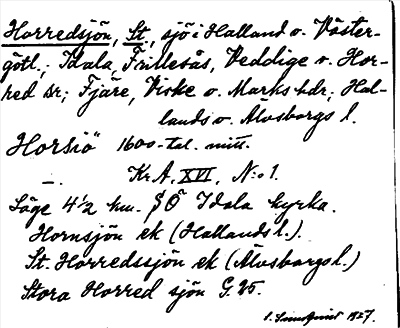 Horredsjön, St., sjö i Halland o. Väster-
götl.; Idala, Frillesås, Veddige o. Hor-
red sr; Fjäre, Viske o. Marks hdr; Hal-
lands o. Älvsborgs l.
Horsiö 1600-tal. mitt.
Kr. A. XVI, N:o 1.
Läge 4 1/2 km. SÖ Idala kyrka.
Hornsjön ek (Hallands l.).
St. Horredssjön ek (Älvsborgs l.)
Stora Horred sjön G. 25.
1927.